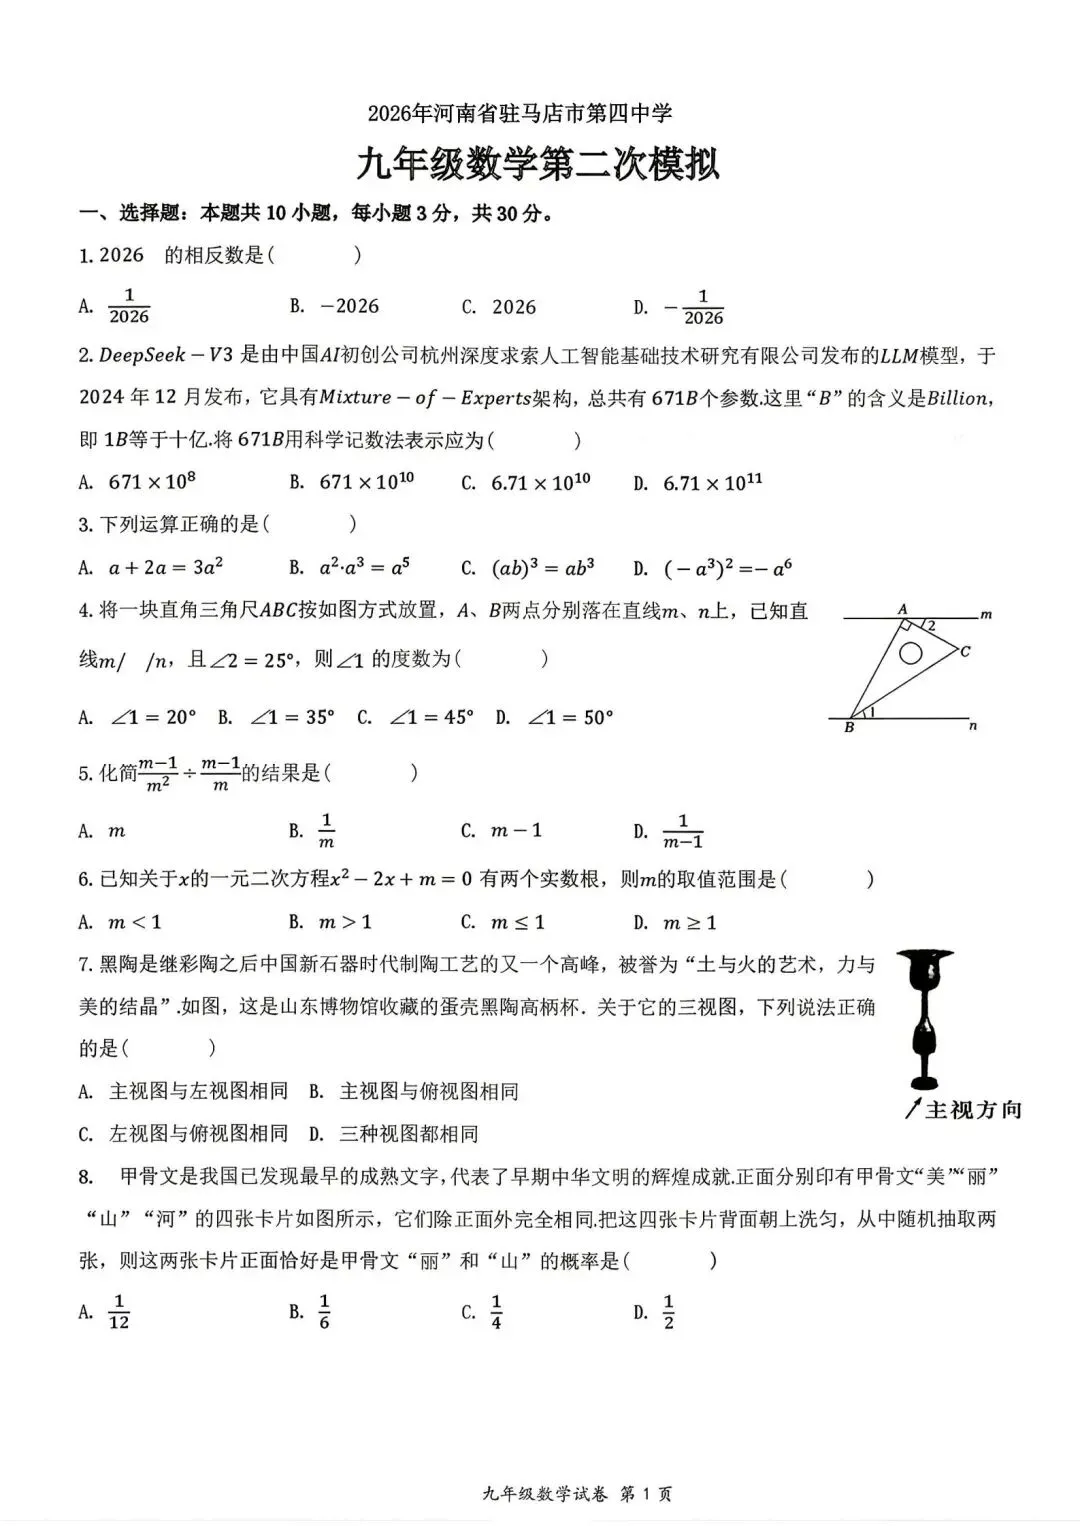 2026年河南省驻马店市第四中学
九年级数学第二次模拟
一、选择题：本题共 10 小题，每小题 3 分，共 30 分。
1. 2026 的相反数是( )
A. 1/2026 B. −2026 C. 2026 D. −1/2026
2. DeepSeek − V3 是由中国AI初创公司杭州深度求索人工智能基础技术研究有限公司发布的LLM模型，于
2024 年 12 月发布，它具有Mixture − of − Experts架构，总共有 671B个参数.这里“B”的含义是Billion，
即 1B等于十亿.将 671B用科学记数法表示应为( )
A. 671 × 10⁸ B. 671 × 10¹⁰ C. 6.71 × 10¹⁰ D. 6.71 × 10¹¹
3. 下列运算正确的是( )
A. a + 2a = 3a² B. a²·a³ = a⁵ C. (ab)³ = ab³ D. (− a³)² =− a⁶
4. 将一块直角三角尺ABC按如图方式放置，A、B两点分别落在直线m、n上，已知直
线m/ /n，且∠2 = 25°，则∠1 的度数为( )
A. ∠1 = 20° B. ∠1 = 35° C. ∠1 = 45° D. ∠1 = 50°
A
m
2
C
1
B
n
5. 化简(m−1)/m² ÷ (m−1)/m的结果是( )
A. m B. 1/m C. m − 1 D. 1/(m−1)
6. 已知关于x的一元二次方程x² − 2x + m = 0 有两个实数根，则m的取值范围是( )
A. m < 1 B. m > 1 C. m ≤ 1 D. m ≥ 1
7. 黑陶是继彩陶之后中国新石器时代制陶工艺的又一个高峰，被誉为“土与火的艺术，力与
美的结晶”.如图，这是山东博物馆收藏的蛋壳黑陶高柄杯．关于它的三视图，下列说法正确
的是( )
A. 主视图与左视图相同 B. 主视图与俯视图相同
C. 左视图与俯视图相同 D. 三种视图都相同
主视方向
8. 甲骨文是我国已发现最早的成熟文字，代表了早期中华文明的辉煌成就.正面分别印有甲骨文“美”“丽”
“山”“河”的四张卡片如图所示，它们除正面外完全相同.把这四张卡片背面朝上洗匀，从中随机抽取两
张，则这两张卡片正面恰好是甲骨文“丽”和“山”的概率是( )
A. 1/12 B. 1/6 C. 1/4 D. 1/2
九年级数学试卷 第 1 页